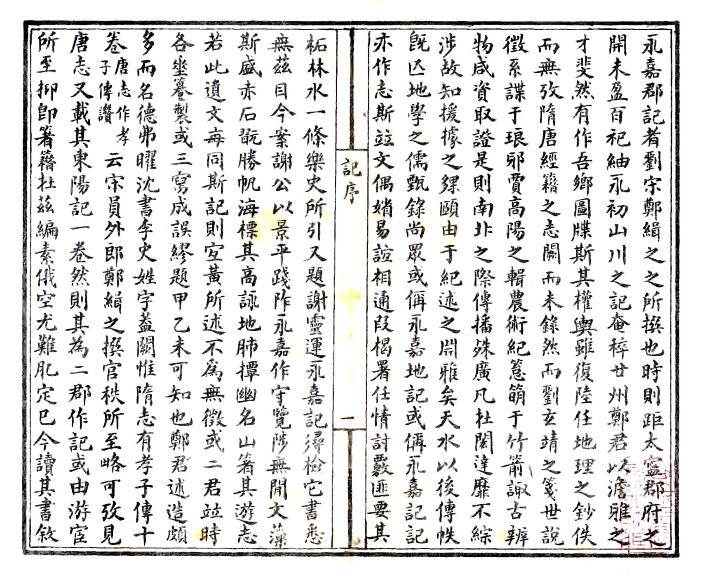 永嘉郡記者劉宋鄭緝之之所撰也時則距太寍郡府之
開未盈百祀紬永初山川之記奄稡廿州鄭君以澹雅之
才斐然有作吾鄉圖牒斯其權輿雖復陸任地理之鈔佚
而無攷隋唐經籍之志闕而未錄然而劉玄靖之箋世說
徵系諜于琅邪賈高陽之輯農術紀蔥萌于竹箭諏古辨
物咸資取證是則南北之際傳播殊廣凡杜閎達靡不綜
涉故知援據之夥頤由于紀述之淵雅矣天水以後傳帙
旣亾地學之儒甄錄尚眾或偁永嘉地記或偁永嘉記記
亦作志斯竝文偶媘易誼相通叚楬署任情討覈匪要其
記序
一
柘林水一條樂史所引又題謝靈運永嘉記㝷檢它書悉
無茲目今案謝公以景平踐阼永嘉作守覽陟無閒文藻
斯盛赤石翫勝帆海標其高詠地肺撢幽名山箸其游志
若此遺文每同斯記則空黃所述不爲無徵或二君竝時
各坐篹製或三寫成誤繆題甲乙未可知也鄭君述造頗
多而名德弗曜沈書李史姓字蓋闕惟隋志有孝子傳十
卷唐志作孝子傳讚云宋員外郎鄭緝之撰官秩所至略可攷見
唐志又載其東陽記一卷然則其為二郡作記或由游宦
所至抑卽箸籍杜茲編素俄空尤難肊定巳今讀其書敘